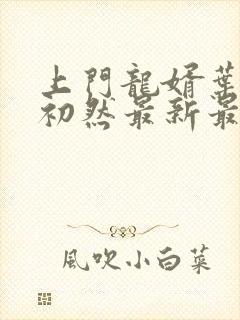 上門龍婿葉
初然最新最
風吹小白菜